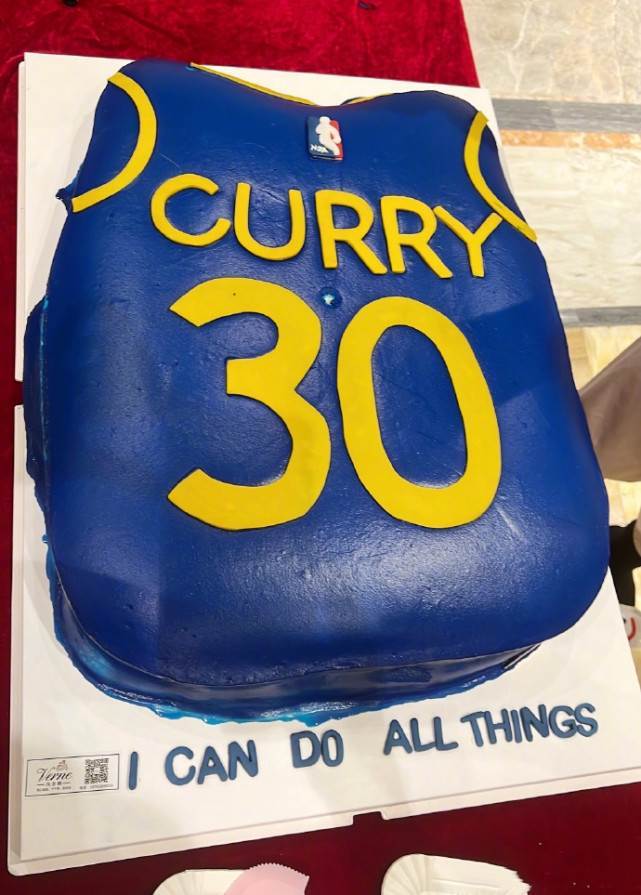 NBA
CURRY
30
I CAN DO ALL THINGS
Verne